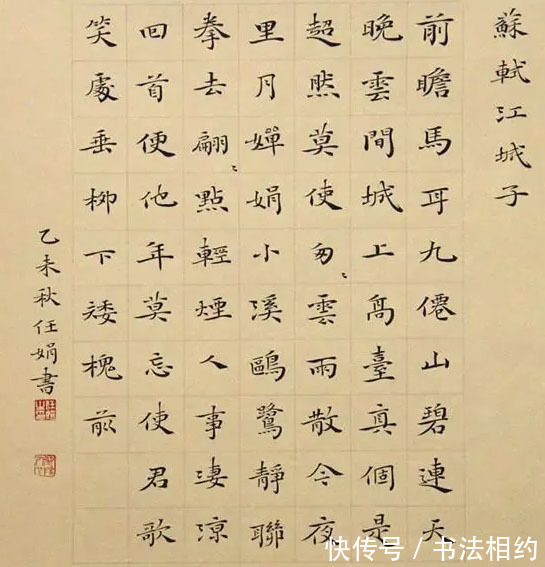 蘇軾江城子
前瞻馬耳九僊山碧連天
晚雲間城上高臺真個是
超然莫使匆〻雲雨散今夜
里月嬋娟小溪鷗鷺靜聯
拳去翩〻點輕煙人事淒涼
回首便他年莫忘使君歌
笑處垂柳下矮槐前
乙未秋任娟書
快传号 / 书法相约